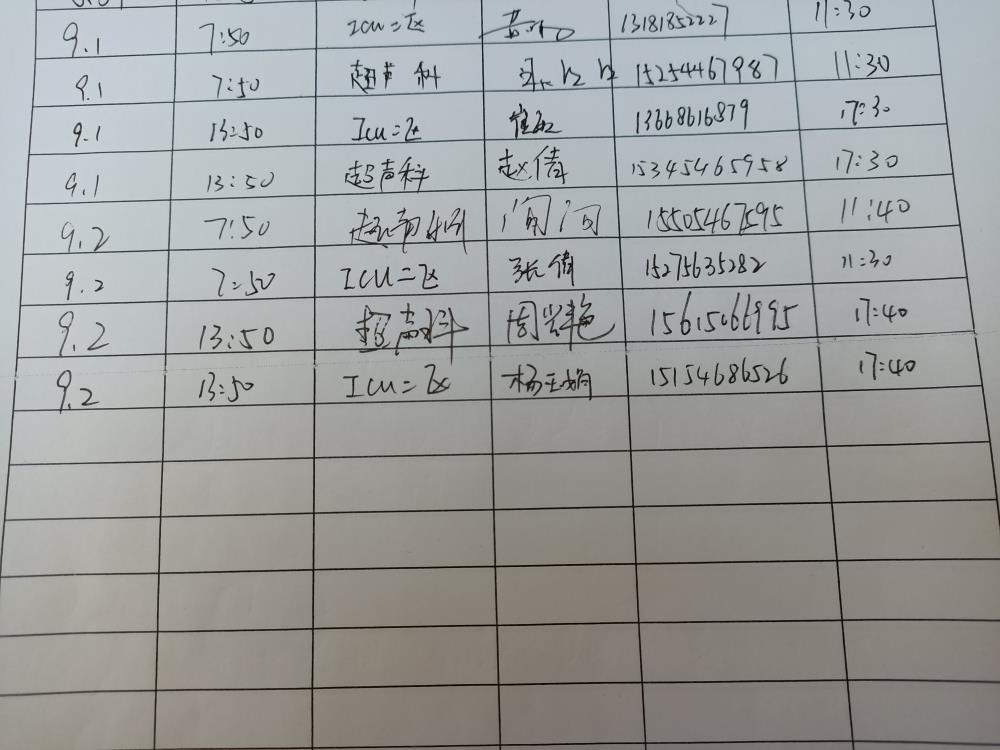 9.1 7:50 ICU=区 13181852227 11:30
9.1 7:50 超声科 15254467987 11:30
9.1 13:50 ICU=区 崔 13668616879 17:30
9.1 13:50 超声科 赵倩 15345465958 17:30
9.2 7:50 超声科 闫问 15505467595 11:40
9.2 7:50 ICU=区 张倩 15275635282 11:30
9.2 13:50 超声科 周学艳 15615066995 17:40
9.2 13:50 ICU=区 杨玉娟 15154686526 17:40